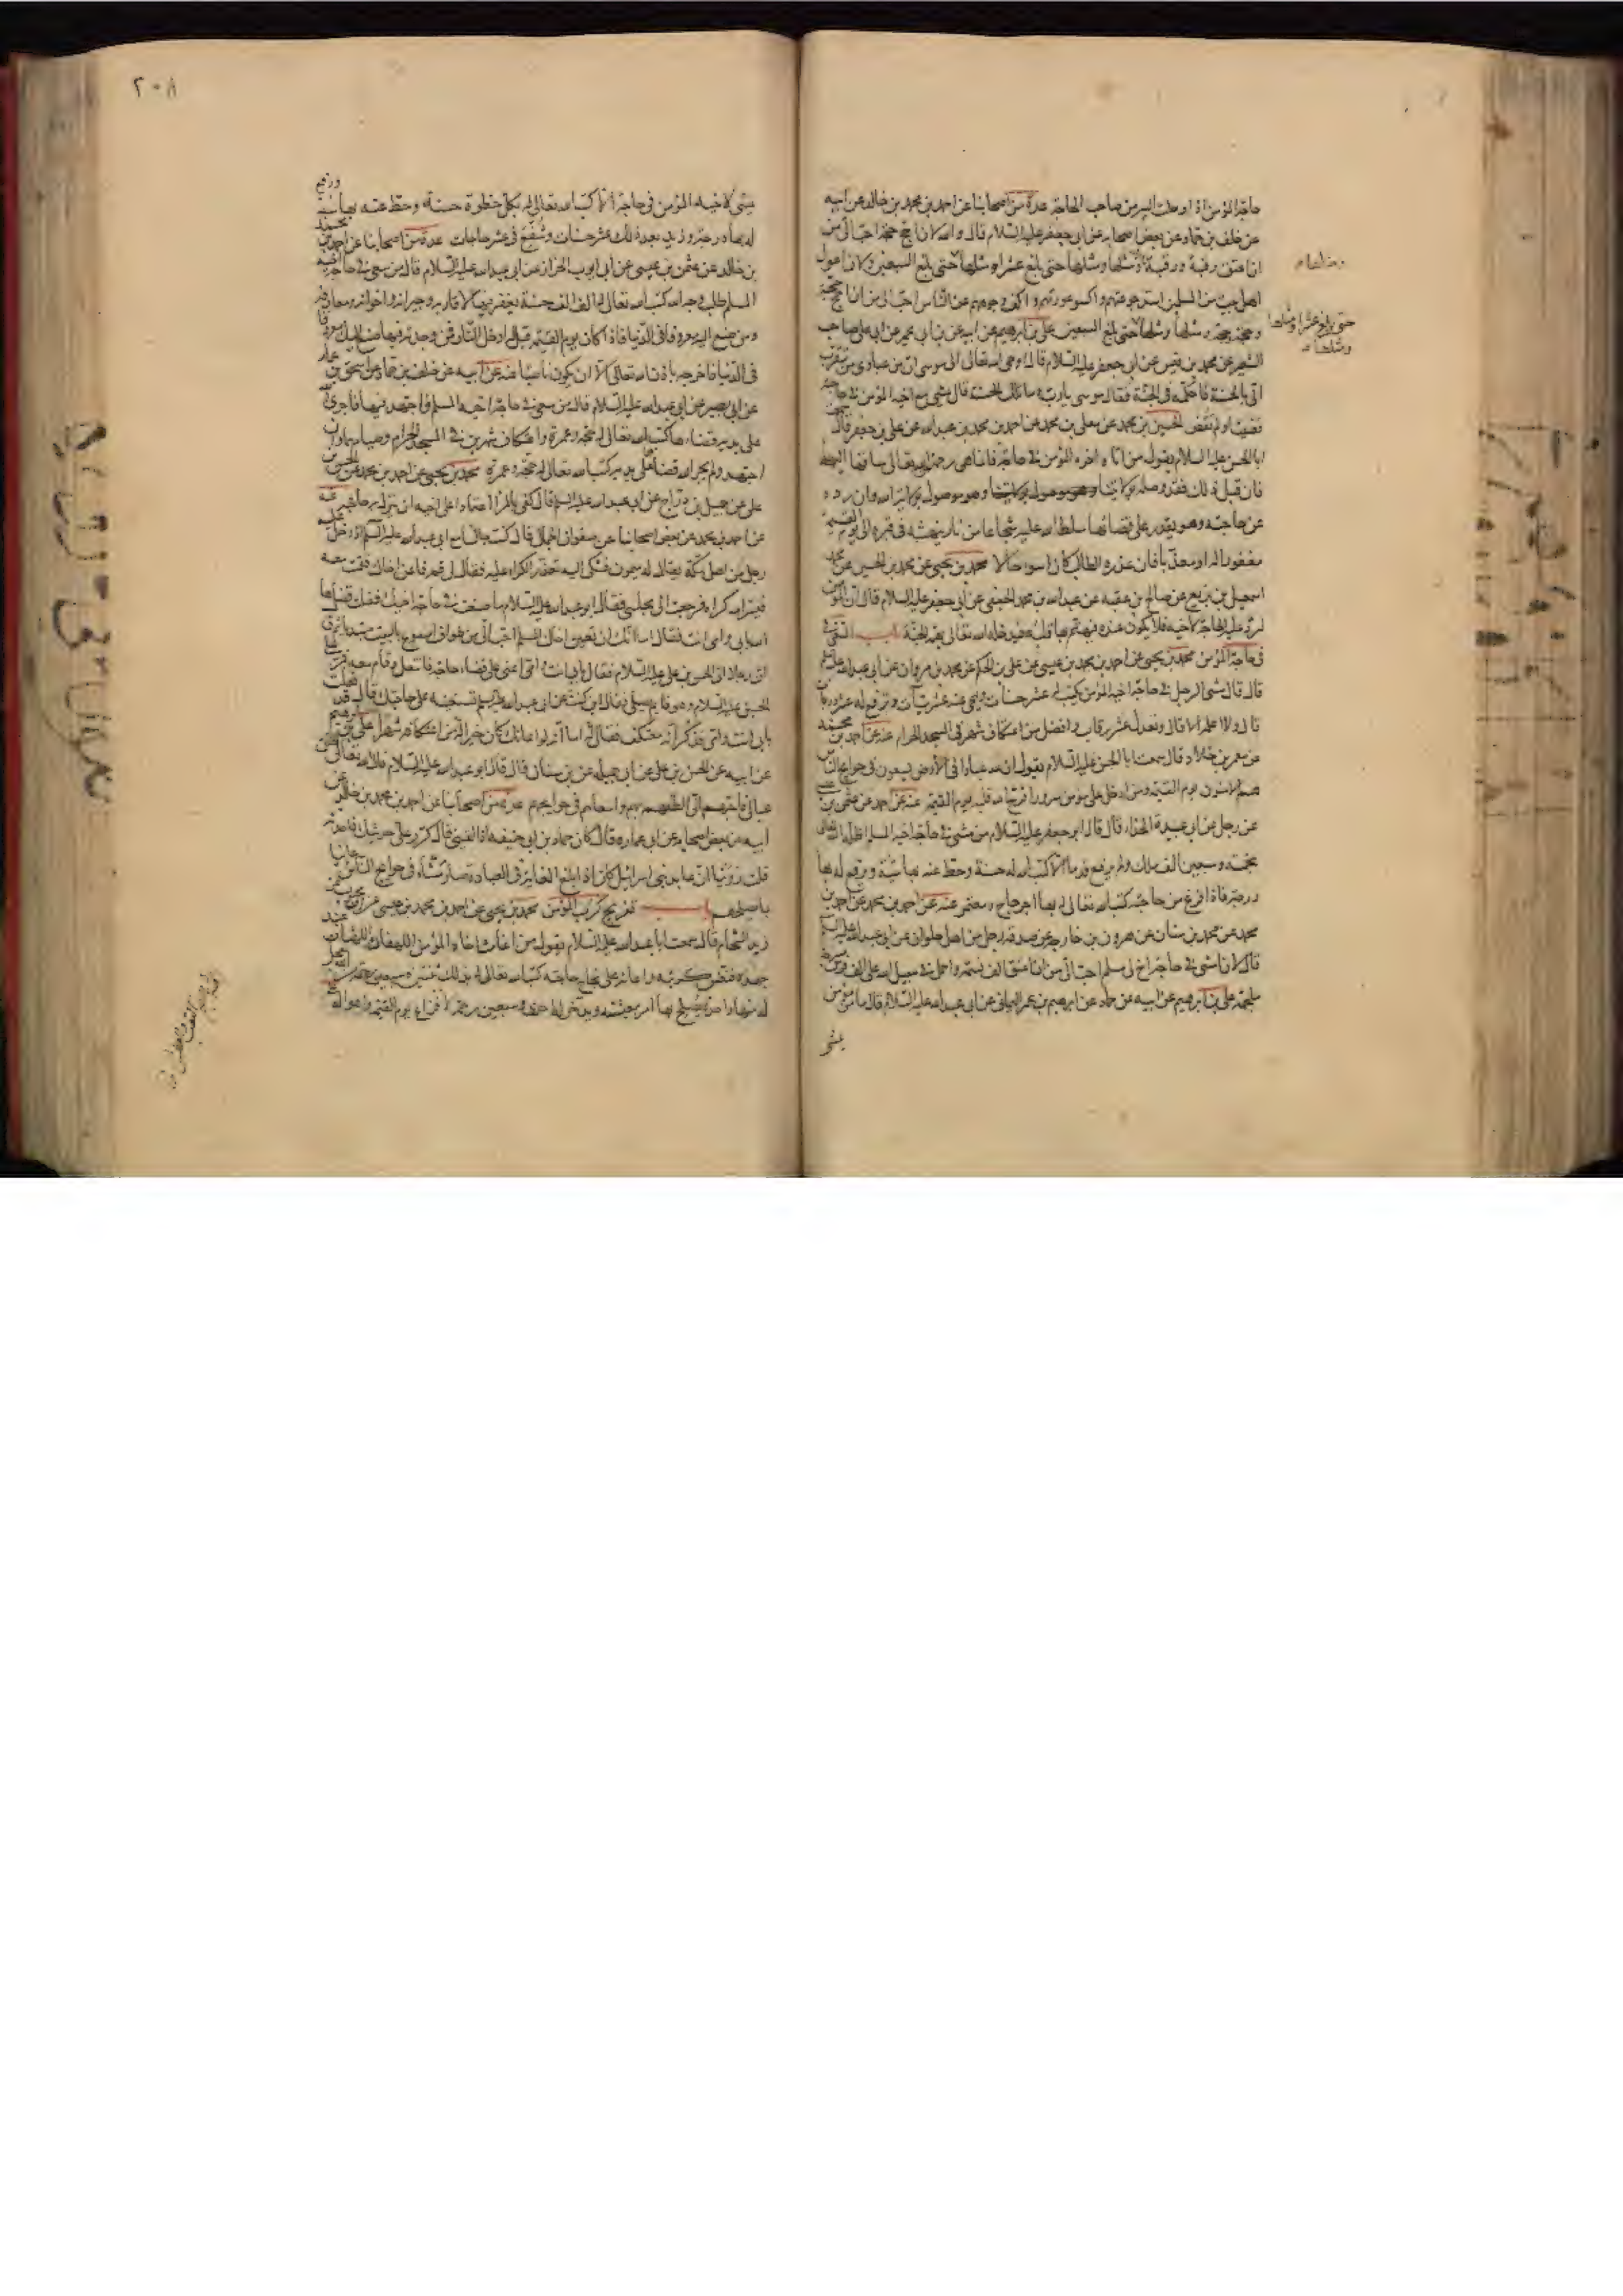 حاجة المؤمن اذا اوصلت اليه من صاحب الحاجة عدة من اصحابنا عن احمد بن محمد بن خالد عن ابيه
عن خلف بن حماد عن بعض اصحابه عن ابي جعفر عليه السلام قال والله لان احج حجة احب الى من
ان اعتق رقبة ورقبة ومثلها ومثلها حتى بلغ عشرا ومثلها ومثلها حتى بلغ السبعين ولان اعول
اهل بيت من المسلمين اسد جوعتهم واكسو عورتهم واكف وجوههم عن الناس احب الى من ان احج حجة
وحجة وحجة ومثلها ومثلها حتى بلغ السبعين علي بن ابرهيم عن ابيه عن ابن ابي عمير عن ابي علي صاحب
الشعير عن محمد بن قيس عن ابي جعفر عليه السلام قال اوحى الله تعالى الى موسى ان من عبادي من يتقرب
الي بالحسنة فاحكمه في الجنة فقال موسى يا رب وما تلك الحسنة قال يمشي مع اخيه المؤمن في حاجته
قضيت او لم تقض الحسين بن محمد عن معلى بن محمد عن احمد بن محمد بن عبدالله عن علي بن جعفر قال
ابا الحسن عليه السلام يقول من اتاه اخوه المؤمن في حاجة فانما هي رحمة من الله تعالى ساقها اليه
فان قبل ذلك فقد وصله بولايتنا وهو موصول بولاية الله وان رده
عن حاجته وهو يقدر على قضائها سلط الله عليه شجاعا من نار ينهشه في قبره الى يوم القيمة
مغفورا له او معذبا فان عذره الطالب كان اسوء حالا محمد بن يحيى عن محمد بن الحسين عن محمد بن
اسمعيل بن بزيع عن صالح بن عقبة عن عبدالله بن محمد الجعفي عن ابي جعفر عليه السلام قال ان المؤمن
لترد عليه الحاجة لاخيه فلا تكون عنده فيهتم بها قلبه فيدخله الله تعالى بهمه الجنة باب السعي
في حاجة المؤمن محمد بن يحيى عن احمد بن محمد بن عيسى عن علي بن الحكم عن محمد بن مروان عن ابي عبدالله عليه السلام
قال قال مشى الرجل في حاجة اخيه المؤمن يكتب له عشر حسنات ويمحى عنه عشر سيئات ويرفع له عشر درجات
قال ولا اعلمه الا قال وتعدل عشر رقاب وافضل من اعتكاف شهر في المسجد الحرام عنه عن احمد بن محمد
عن معمر بن خلاد قال سمعت ابا الحسن عليه السلام يقول ان لله عبادا في الارض يسعون في حوائج الناس
هم الآمنون يوم القيمة ومن ادخل على مؤمن سرورا فرح الله قلبه يوم القيمة عنه عن احمد عن عثمن بن
عن رجل عن ابي عبيدة الحذاء قال قال ابو جعفر عليه السلام من مشى في حاجة اخيه المسلم اظله الله تعالى
بخمسة وسبعين الف ملك ولم يرفع قدما الا كتب الله له حسنة وحط عنه بها سيئة ويرفع له بها
درجة فاذا فرغ من حاجته كتب الله تعالى له بها اجر حاج ومعتمر عنه عن احمد بن محمد عن احمد بن
محمد عن محمد بن سنان عن هرون بن خارجة عن صدقة رجل من اهل حلوان عن ابي عبدالله عليه السلام
قال لان امشي في حاجة اخ لي مسلم احب الي من ان اعتق الف نسمة واحمل في سبيل الله على الف فرس مسرجة
ملجمة علي بن ابرهيم عن ابيه عن حماد عن ابرهيم بن عمر اليماني عن ابي عبدالله عليه السلام قال ما مؤمن
يمشي
حتى بلغ عشرا ومثلها
ومثلها
٢٠٨
يمشي لاخيه المؤمن في حاجة الا كتب الله تعالى له بكل خطوة حسنة وحط عنه بها سيئة
ورفع
له بها درجة وزيد بعد ذلك عشر حسنات وشفع في عشر حاجات عدة من اصحابنا عن احمد بن محمد
بن خالد عن عثمن بن عيسى عن ابي ايوب الخزاز عن ابي عبدالله عليه السلام قال من سعى في حاجة اخيه
المسلم طلب وجه الله كتب الله تعالى له الف الف حسنة يغفر فيها لاقاربه وجيرانه واخوانه ومعارفه
ومن صنع اليه معروفا في الدنيا فاذا كان يوم القيمة قيل له ادخل النار فمن وجدته فيها صنع اليك معروفا
في الدنيا فاخرجه باذن الله تعالى الا ان يكون ناصبا عنه عن ابيه عن خلف بن حماد عن اسحق بن عمار
عن ابي بصير عن ابي عبدالله عليه السلام قال من سعى في حاجة اخيه المسلم فاجتهد فيها فاجرى الله
على يديه قضاءها كتب الله تعالى له حجة وعمرة واعتكاف شهرين في المسجد الحرام وصيامهما وان
اجتهد ولم يجر الله قضاءها على يديه كتب الله تعالى له حجة وعمرة محمد بن يحيى عن احمد بن محمد عن الحسن بن
علي عن جميل بن دراج عن ابي عبدالله عليه السلام قال كفى بالمرء اعتمادا على اخيه ان ينزل به حاجته عنه
عن احمد بن محمد عن بعض اصحابنا عن صفوان الجمال قال كنت جالسا مع ابي عبدالله عليه السلام اذ دخل عليه
رجل من اهل مكة يقال له ميمون فشكى اليه تعذر الكراء عليه فقال لي قم فاعن اخاك فقمت معه
فيسر الله كراه فرجعت الى مجلسي فقال ابو عبدالله عليه السلام ما صنعت في حاجة اخيك فقلت قضاها
الله بابي وامي انت فقال اما انك ان تعين اخاك المسلم احب الي من طواف اسبوع بالبيت مبتدءا ثم قال
ان رجلا اتى الحسن بن علي عليه السلام فقال بابي انت وامي اعني على قضاء حاجة فانتعل وقام معه فمر على
الحسين عليه السلام وهو قائم يصلي فقال اين كنت عن ابي عبدالله عليه السلام تستعينه على حاجتك قال قد فعلت
بابي انت وامي فذكر انه معتكف فقال له اما انه لو اعانك كان خيرا له من اعتكافه شهرا علي بن ابرهيم
عن ابيه عن الحسن بن علي عن ابي جميلة عن ابن سنان قال قال ابو عبدالله عليه السلام قال الله تعالى الخلق
عيالي فاحبهم الي الطفهم بهم واسعاهم في حوائجهم عدة من اصحابنا عن احمد بن محمد بن خالد عن
ابيه عن بعض اصحابه عن ابي عمارة قال كان حماد بن ابي حنيفة اذا لقيني قال كرر علي حديثك فاحدثه
قلت روينا ان عابد بني اسرائيل كان اذا بلغ الغاية في العبادة صار مشاء في حوائج الناس عانيا
بما يصلحهم باب تفريج كرب المؤمن محمد بن يحيى عن احمد بن محمد بن عيسى عن الحسن بن محبوب عن
زيد الشحام قال سمعت ابا عبدالله عليه السلام يقول من اغاث اخاه المؤمن اللهفان اللهثان عند
جهده فنفس كربته واعانه على نجاح حاجته كتب الله تعالى له بذلك ثنتين وسبعين رحمة من الله يعجل
له منها واحدة يصلح بها امر معيشته ويدخر له احدى وسبعين رحمة لافزاع يوم القيمة واهواله